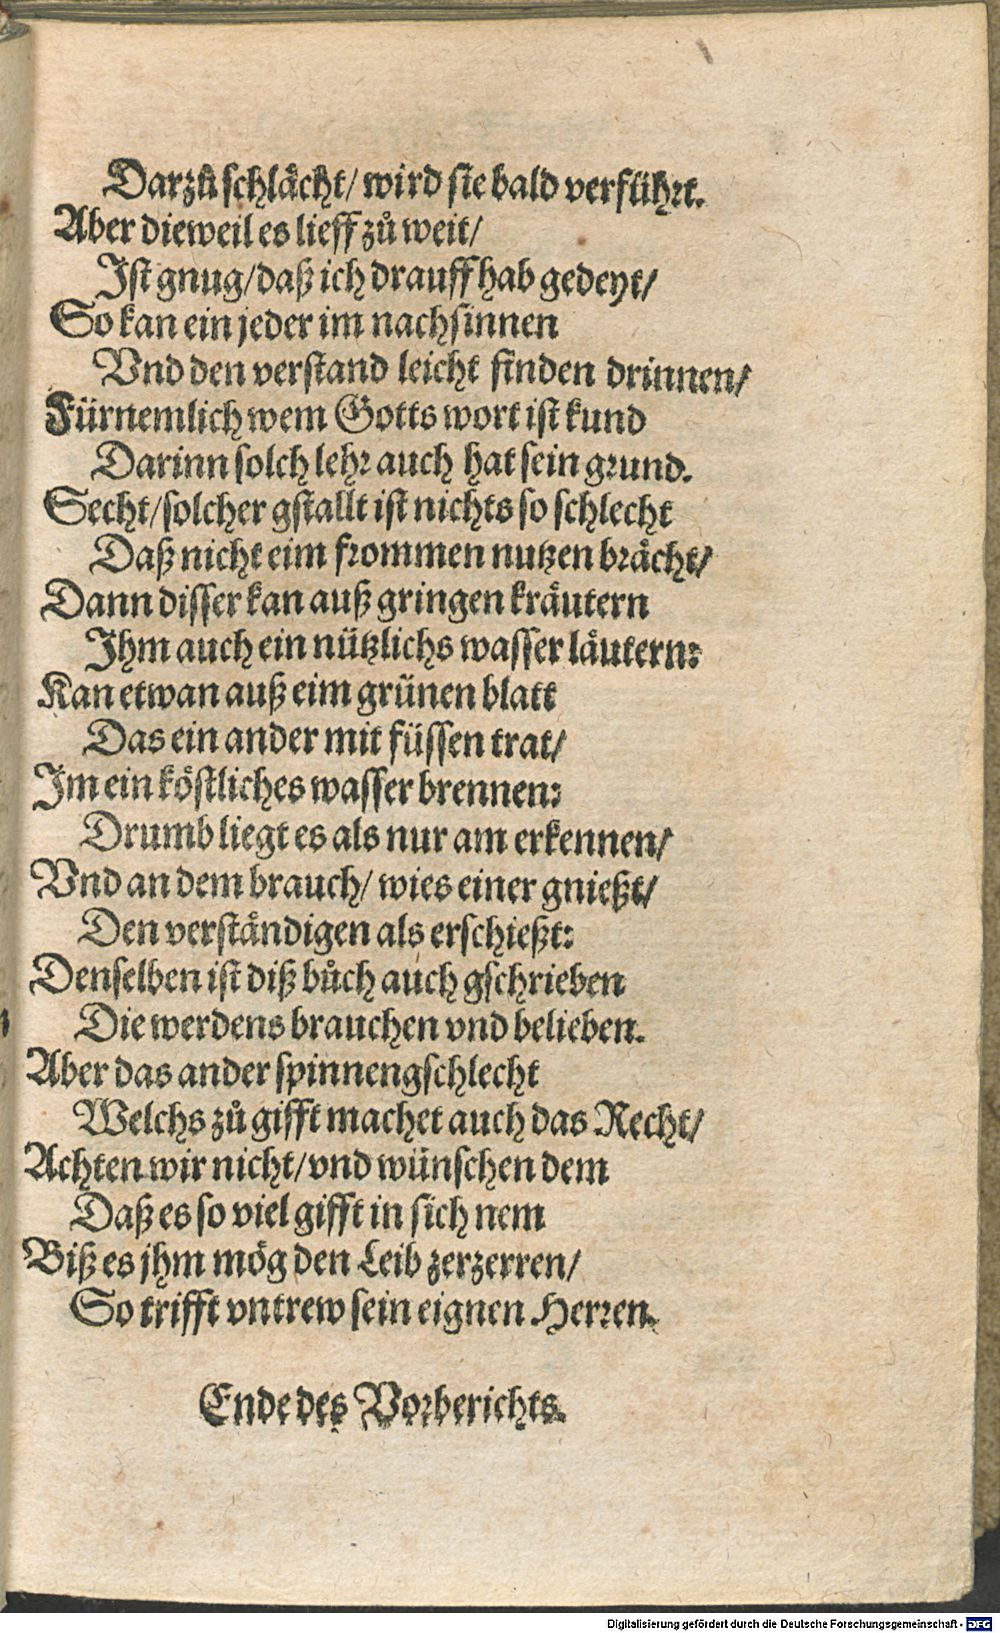 Darzů schlächt/ wird sie bald verführt.
Aber dieweil es lieff zů weit/
Ist gnug/daß ich drauff hab gedeyt/
So kan ein jeder im nachsinnen
Vnd den verstand leicht finden drinnen/
Fürnemlich wem Gotts wort ist kund
Darinn solch lehr auch hat sein grund.
Secht/solcher gstallt ist nichts so schlecht
Daß nicht eim frommen nutzen brächt/
Dann disser kan auß gringen kräutern
Ihm auch ein nützlichs wasser läutern:
Kan etwan auß eim grünen blatt
Das ein ander mit füssen trat/
Im ein köstliches wasser brennen:
Drumb liegt es als nur am erkennen/
Vnd an dem brauch/ wies einer gnießt/
Den verständigen als erschießt:
Denselben ist diß bůch auch gschrieben
Die werdens brauchen vnd belieben.
Aber das ander spinnengschlecht
Welchs zů gifft machet auch das Recht/
Achten wir nicht/vnd wünschen dem
Daß es so viel gifft in sich nem
Biß es jhm mög den Leib zerzerren/
So trifft vntrew sein eignen Herren.
Ende des Vorberichts.
Digitalisierung gefördert durch die Deutsche Forschungsgemeinschaft - DFG